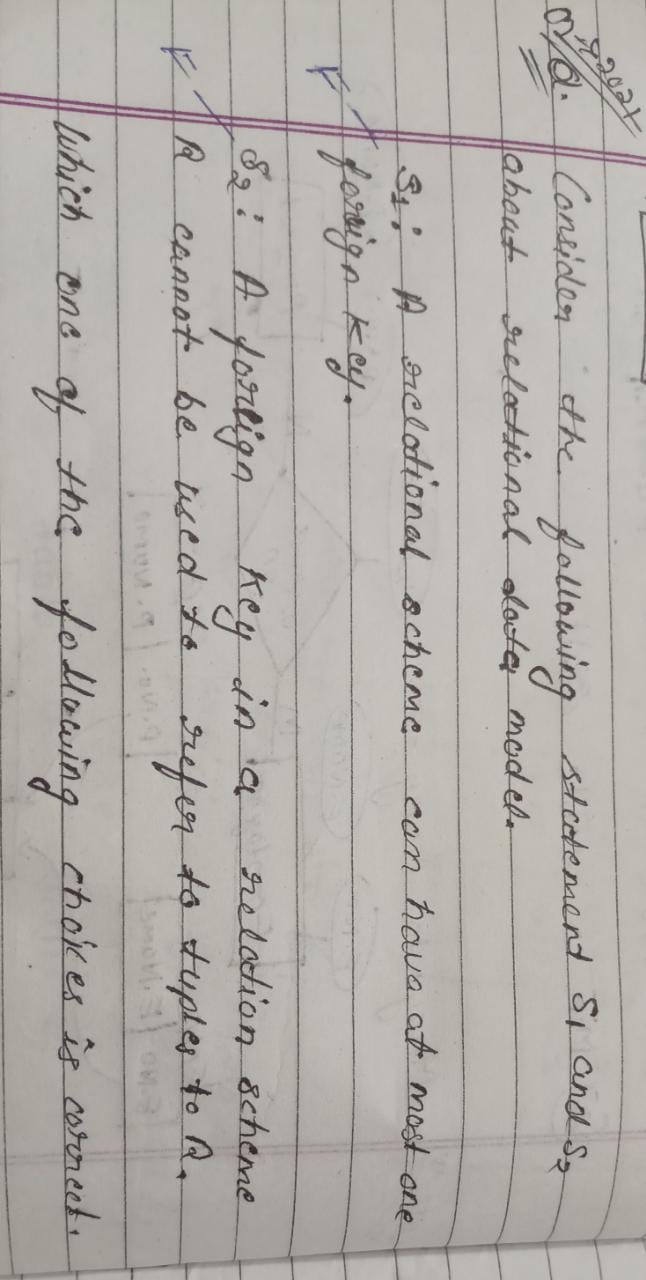 2021
Q. Consider the following statement S1 and S2
about relational data model.
S1: A relational scheme can have at most one
foreign key.
F
S2: A foreign key in a relation scheme
R cannot be used to refer to tuples to R.
F
Which one of the following choices is correct.